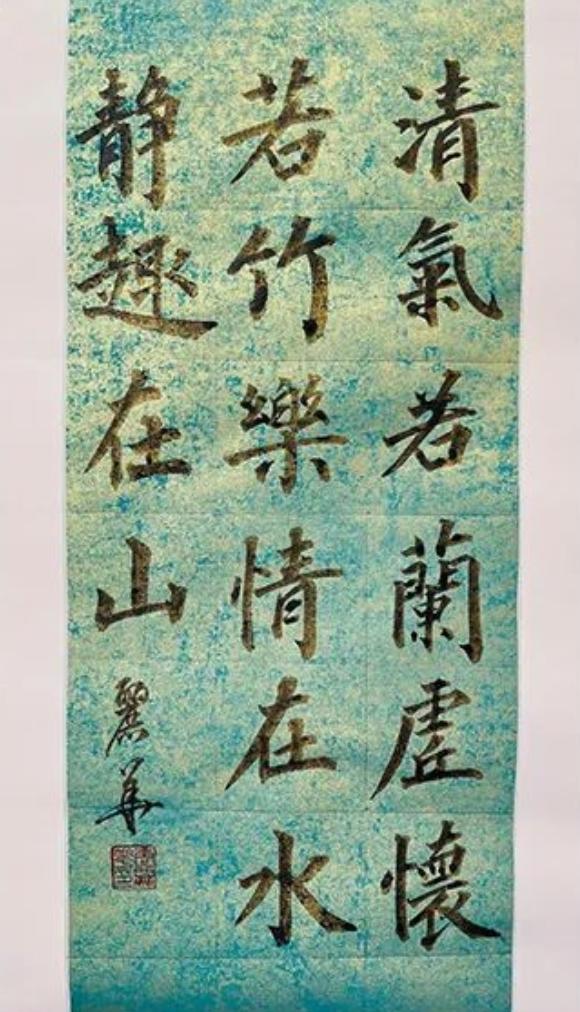 清氣若蘭虛懷
若竹樂情在水
静趣在山
麗華